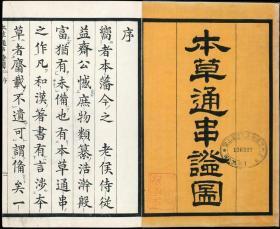 本草通串證圖
序
嚮者本藩今之 老侯侍從
益齋公憾庶物類纂浩瀚殷
富猶有未備也有本草通串
之作凡和漢著書有言涉本
草者靡載不遺可謂備矣一